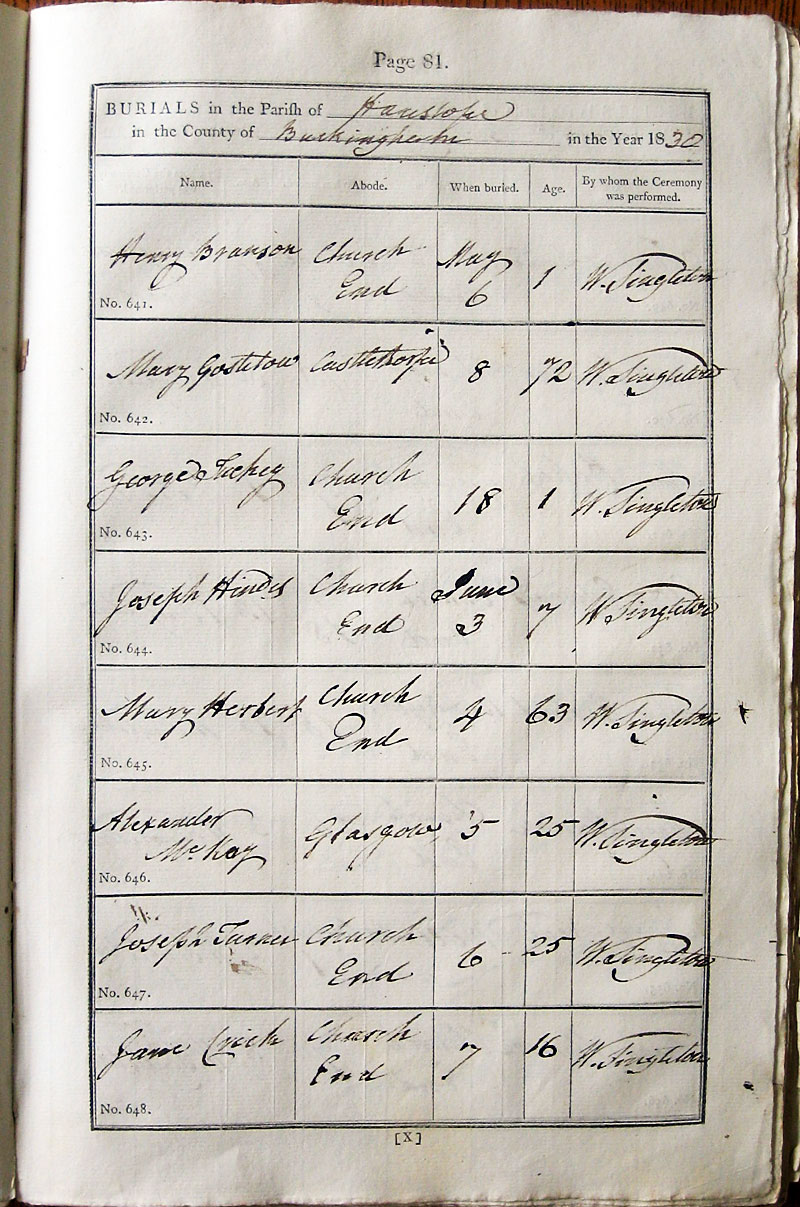 Page 81.
BURIALS in the Parish of Hanslope
in the County of Buckingham in the Year 1830
Name. Abode. When buried. Age. By whom the Ceremony was performed.
Henry Branson Church End May 6 1 W. Singleton
No. 641.
Mary Gostelow Castlethorpe 8 72 W. Singleton
No. 642.
George Tuckey Church End 18 1 W. Singleton
No. 643.
Joseph Hindes Church End June 3 7 W. Singleton
No. 644.
Mary Herbert Church End 4 63 W. Singleton
No. 645.
Alexander McKay Glasgow 5 25 W. Singleton
No. 646.
Joseph Turner Church End 6 25 W. Singleton
No. 647.
Jane Crick Church End 7 16 W. Singleton
No. 648.
[X]